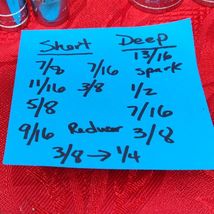 Short Deep
13/16
7/8 7/16 Spark
11/16 3/8 1/2
5/8 7/16
9/16 Reducer 3/8
3/8 → 1/4